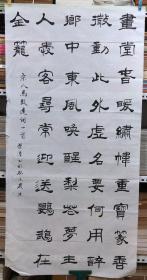 畫堂旾暖繡幃重寶篆香
微動此外虛名要何用醉
鄉中東風喚醒梨花夢主
人愛客尋常迎送鸚鵡在
金籠
宋人馬致遠詞一首